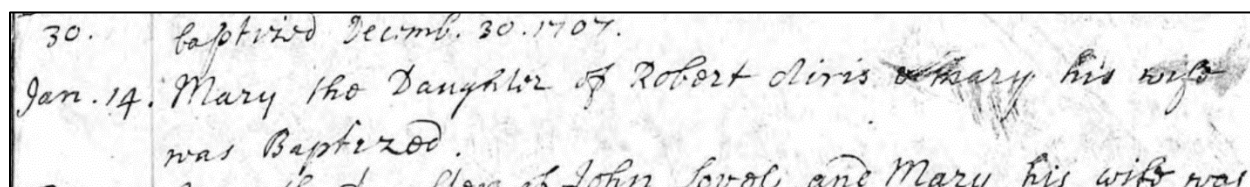 30. baptized Decemb. 30. 1707.
Jan. 14. Mary the Daughter of Robert & Mary his wife
was Baptized.
of John and Mary his wife was